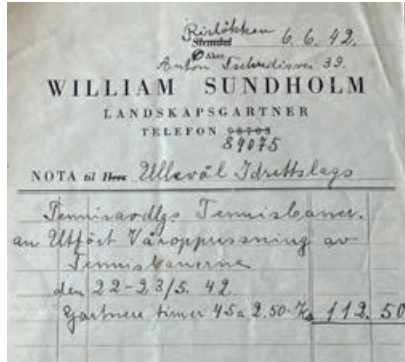 Risløkken 6.6.42.
Stendal
Ø Aker
Anton Tschudisvei 39.
WILLIAM SUNDHOLM
LANDSKAPSGARTNER
TELEFON 98703
84075
NOTA til Herr Ullevål Idrettslags
Tennisavdlgs Tennisbaner.
an Utført Våroppussning av
Tennisbanerne
den 22-23/5. 42
Gartnere timer 45 a 2.50 Kr 112.50